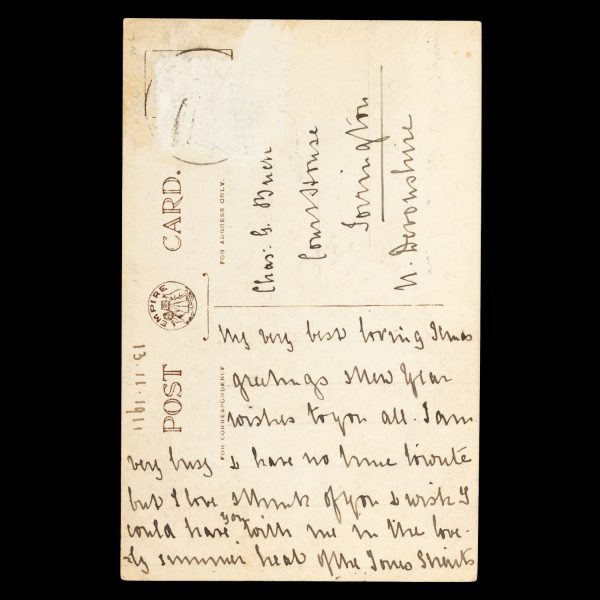 POST CARD.
EMPIRE
FOR ADDRESS ONLY.
FOR CORRESPONDENCE
13·11·1911
Chas: G.
Court House
Torrington
N. Devonshire
My very best loving Xmas
greetings & New Year
wishes to you all. I am
very busy & have no time to write
but I love & think of you & wish I
could have you with me in the love-
ly summer heat of the Torres Straits